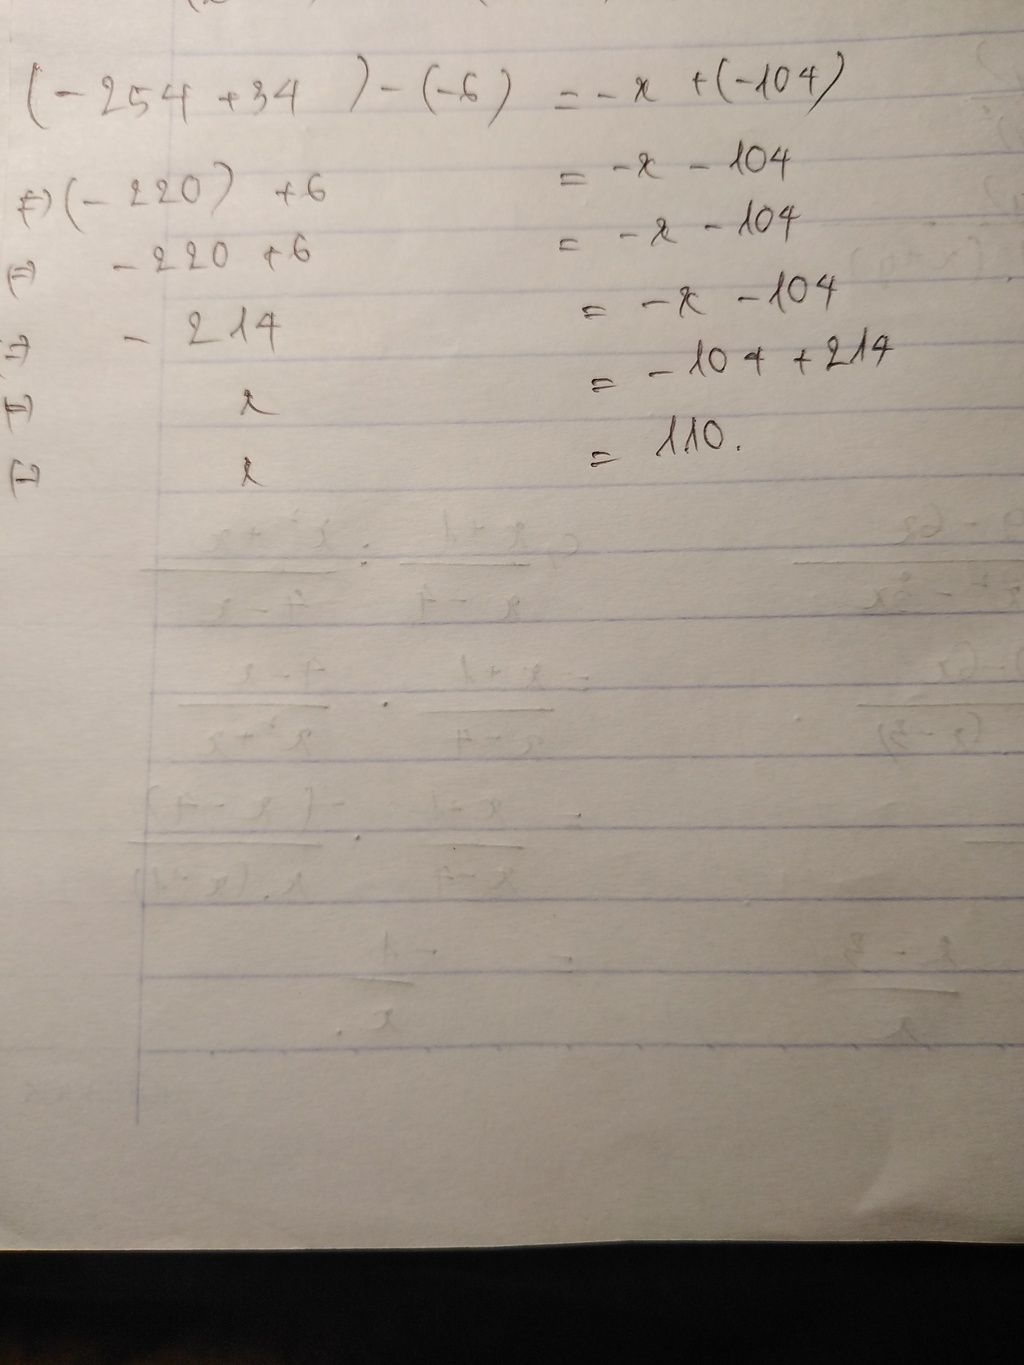 (-254+34) - (-6) = -x + (-104)
⇔ (-220) + 6 = -x - 104
⇔ -220 + 6 = -x - 104
⇔ -214 = -x - 104
⇔ x = -104 + 214
⇔ x = 110.